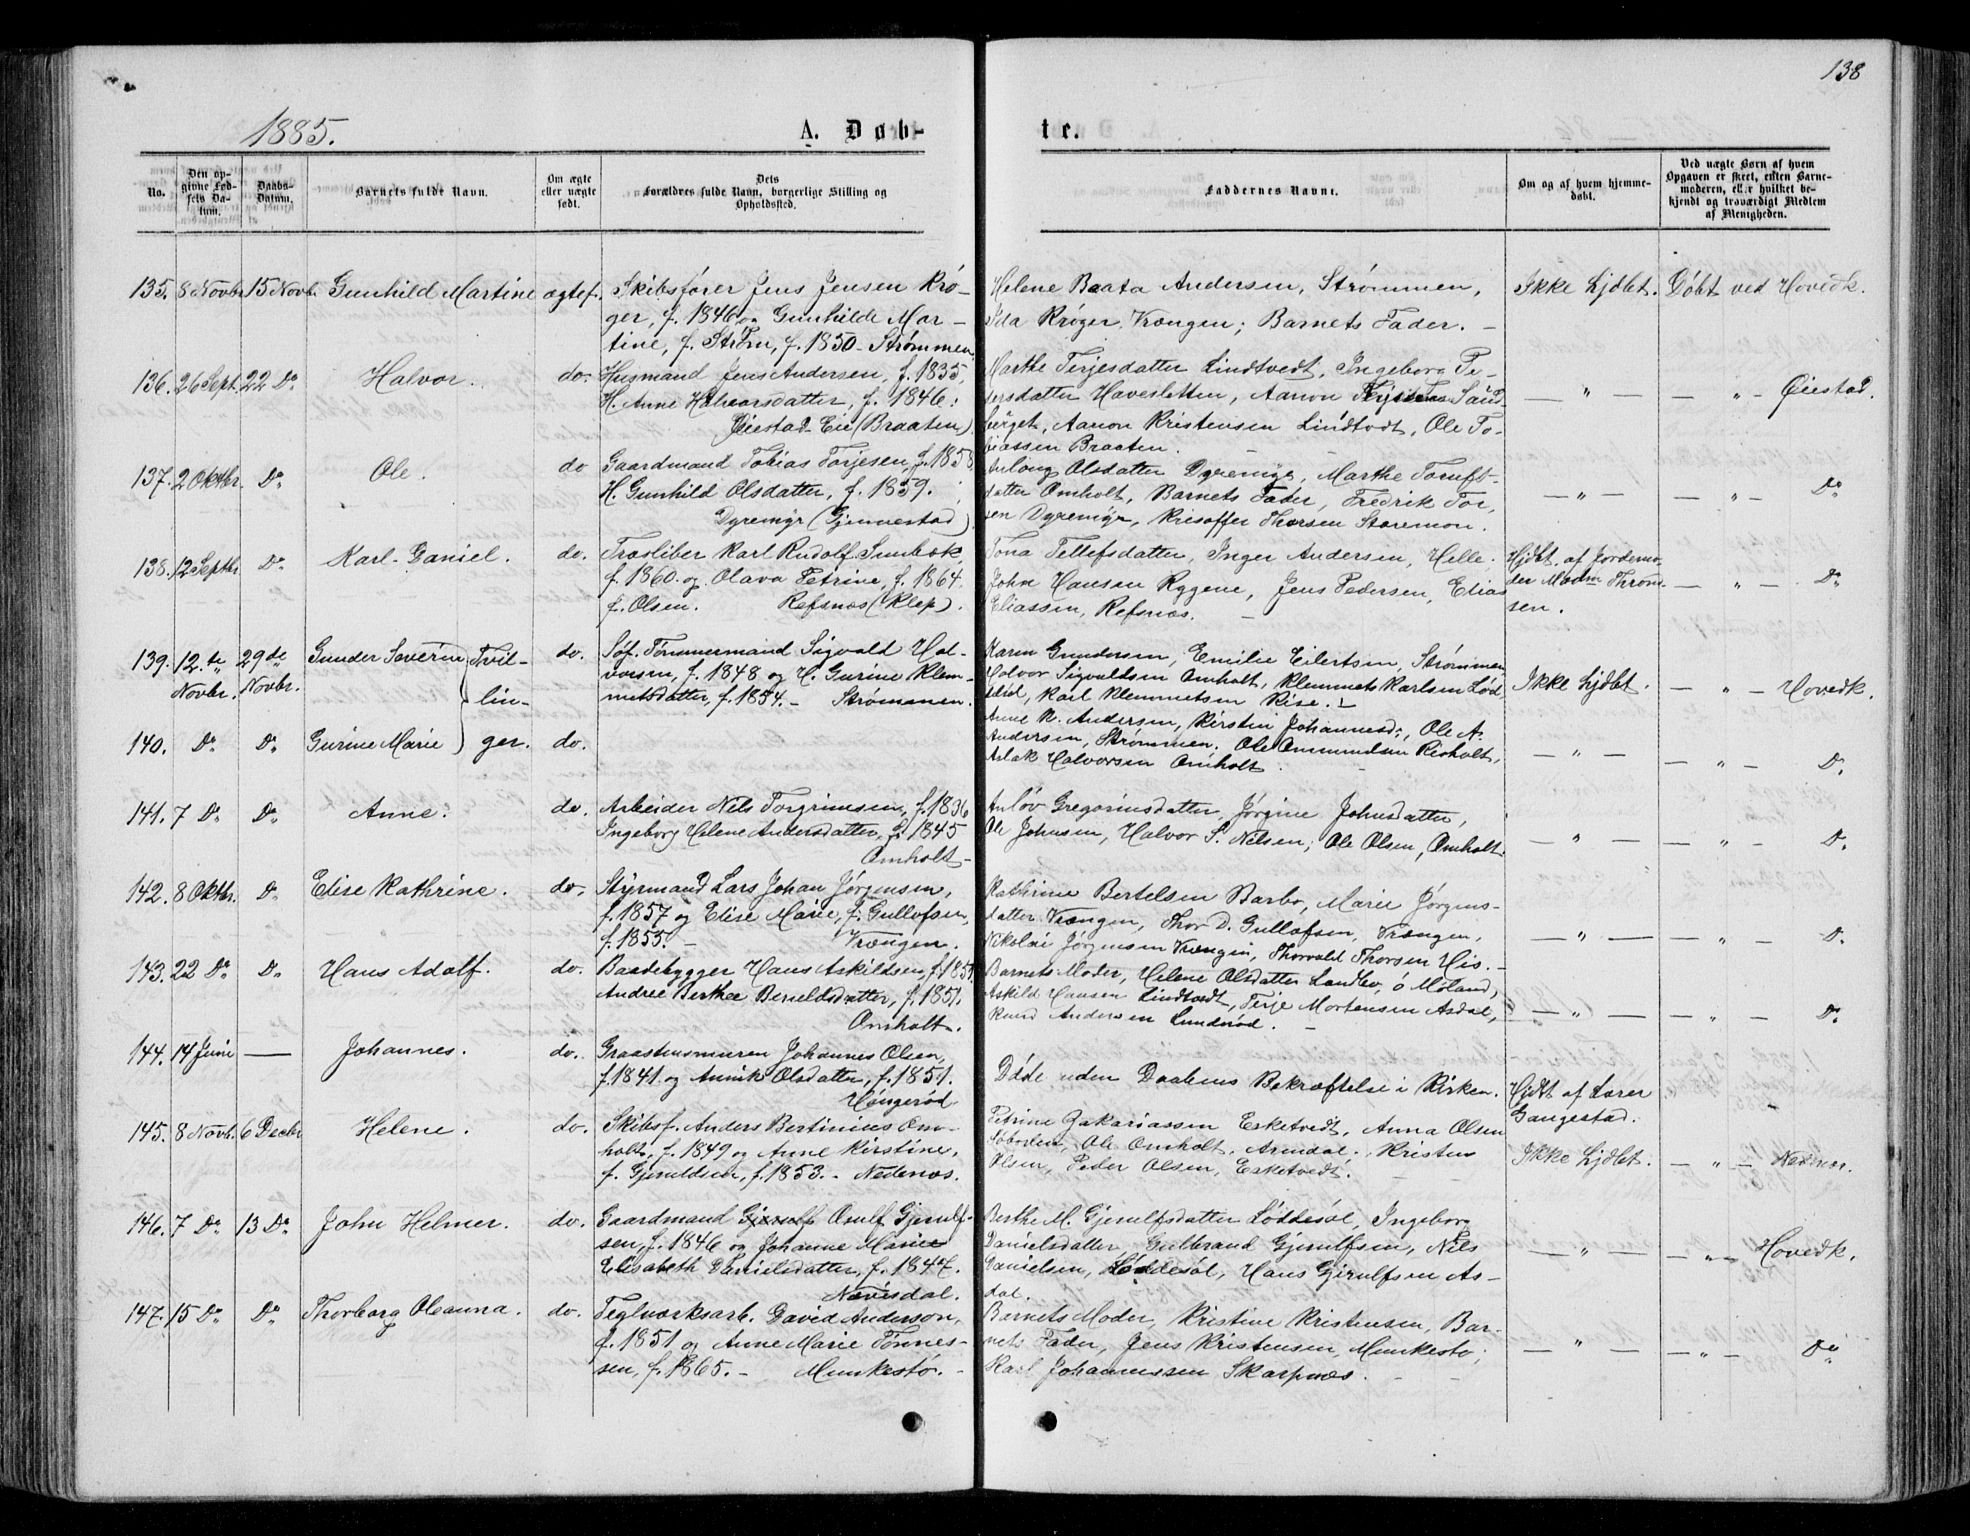 138
1885.
A. Døb-
te.
No.
Den op-
givne Fød-
sels Da-
tum.
Daabs-
Datum.
Barnets fulde Navn.
Om ægte
eller uægte
født.
Dets
Forældres fulde Navn, borgerlige Stilling og
Opholdssted.
Faddernes Navne.
Om og af hvem hjemme-
døbt.
Ved uægte Børn af hvem
Opgaven er skeet, enten Barne-
moderen, eller hvilket be-
kjendt og troværdigt Medlem
af Menigheden.
135. 8 Novbr. 15 Novb. Gunhild Martine ægtef.
Skibsfører Jens Jensen Krø-
ger, f. 1846 og Gunhilde Mar-
tine, f. Strøm, f. 1850 - Strømmen
Helene Beata Andersen, Strømmen,
Ida Krøger, Vrængen; Barnets Fader. -
Ikke hjdbt. Døbt ved Hovedk.
136. 26 Sept. 22 Do Halvor. do.
Husmand Jens Andersen, f. 1835,
H. Anne Halvorsdatter, f. 1846:
Øiestad-Eie (Braaten).
Marthe Terjesdatter Lindtvedt, Ingeborg Pe-
dersdatter Havesletten, Aanon
berget, Aanon Kristensen Lindtvedt, Ole To-
biassen Braaten.
— " — — " - Øiestad.
137. 2 Oktbr. Do Ole. do
Gaardmand Tobias Torjesen, f. 1858
H. Gunhild Olsdatter, f. 1859.
Dyremyr (Gjennestad).
Anlong Olsdatter Dyremyr, Marthe
datter Omholt, Barnets Fader, Fredrik Tor-
sen Dyremyr, Kristoffer Thorsen Storemon.
— " — — " — Do
138. 12 Septbr. Do Karl Daniel. do.
Træsliber Karl Rudolf
f. 1860 og Olava Petrine, f. 1864.
f. Olsen. Refsnæs (Klep).
Tona Tellefsdatter, Inger Andersen, Helle.
John Hansen Rygene, Jens Pedersen, Elias
Eliassen, Refsnæs. -
Hjdbt. af Jordemo-
der Madm Throm-
sen.
— " — Do
139. 12te Novbr. 29de Novbr. Gunder Severin } Tvil-
lin-
do.
Søf. Tømmermand Sigvald Hal-
vorsen, f. 1848 og H. Gurine Klem-
metsdatter, f. 1854. - Strømmen.
Karen Gundersen, Emilie Eilertsen, Strømmen
Halvor Sigvaldsen Omholt, Klemmet Karlsen Lød-
desøl, Karl Klemmetsen Rise. -
Ikke hjdbt. — " — Hovedk.
140. Do Do Gurine Marie } ger. do.
Anne K. Andersen, Kirstin Johannesd., Ole A.
Andersen, Strømmen. Ole Ommundsen Risholt,
Aslak Halvorsen Omholt.
— " — — " — Do
141. 7 Do Do Anne. do.
Arbeider Nils Torgrimsen, f. 1836
Ingeborg Helene Andersdatter, f. 1845
Omholt -
Anlov Gregoriusdatter, Jørgine Johnsdatter,
Ole Johnsen, Halvor S. Nilsen, Ole Olsen, Omholt.
— " — — " — Do
142. 8 Oktbr. Do Elise Kathrine. do.
Styrmand Lars Johan Jørgensen,
f. 1857 og Elise Marie, f. Gullofsen,
f. 1855. - Vrængen.
Kathrine Bertelsen Barbo, Marie Jørgens-
datter Vrængen, Thor D. Gullofsen, Vrængen,
Nikolai Jørgensen Vrængen, Thorvald Thorsen His. -
— " — — " — Do
143. 22 Do Do Hans Adolf. do.
Baadebygger Hans Askildsen, f. 1851.
Andree Berthee Bereldsdatter, f. 1851.
Omholt.
Barnets Moder, Helene Olsdatter Landbo, ø Moland,
Askild Hansen Lindtvedt, Terje Mortensen Asdal,
Knud Andersen Lunderød. -
— " — — " — Do
144. 14 Juni — Johannes. do.
Graastensmurer Johannes Olsen,
f. 1841 og Annik Olsdatter, f. 1851.
Haugerød
Døde uden Daabens Bekræftelse i Kirken.
Hjdbt af Lærer
Gaugestad.
145. 8 Novb. 6 Decbr Helene. do.
Skibsf. Anders Bertinius Om-
holt, f. 1849 og Anne Kirstine,
f. Gjeruldsen, f. 1853. - Nedenæs.
Petrine Zakariassen Esketvedt, Anna Olsen
Ole Omholt, Arendal. Kristen
Olsen, Peder Olsen, Esketvedt. -
Ikke hjdbt. — " — Nedenæs.
146. 7 Do 13 Do John Helmer. do.
Gaardmand Gjerulf Osulf Gjerulf-
sen, f. 1846 og Johanne Marie
Elisabeth Danielsdatter, f. 1847.
Nævisdal.
Berthe M. Gjerulfsdatter Løddesøl, Ingeborg
Danielsdatter Gulbrand Gjerulfsen, Nils
Danielsen, Løddesøl, Hans Gjerulfsen As-
dal.
— " — — " — Hovedk.
147. 15 Do Do Thorborg Oleanna. do.
Teglværksarb. David Anderson,
f. 1851 og Anne Marie Tønnes-
sen, f. 1865. - Munkestø. -
Barnets Moder, Kristine Kristensen, Bar-
nets Fader, Jens Kristensen, Munkestø,
Karl Johannessen Skarpnæs. -
— " — — " — Do